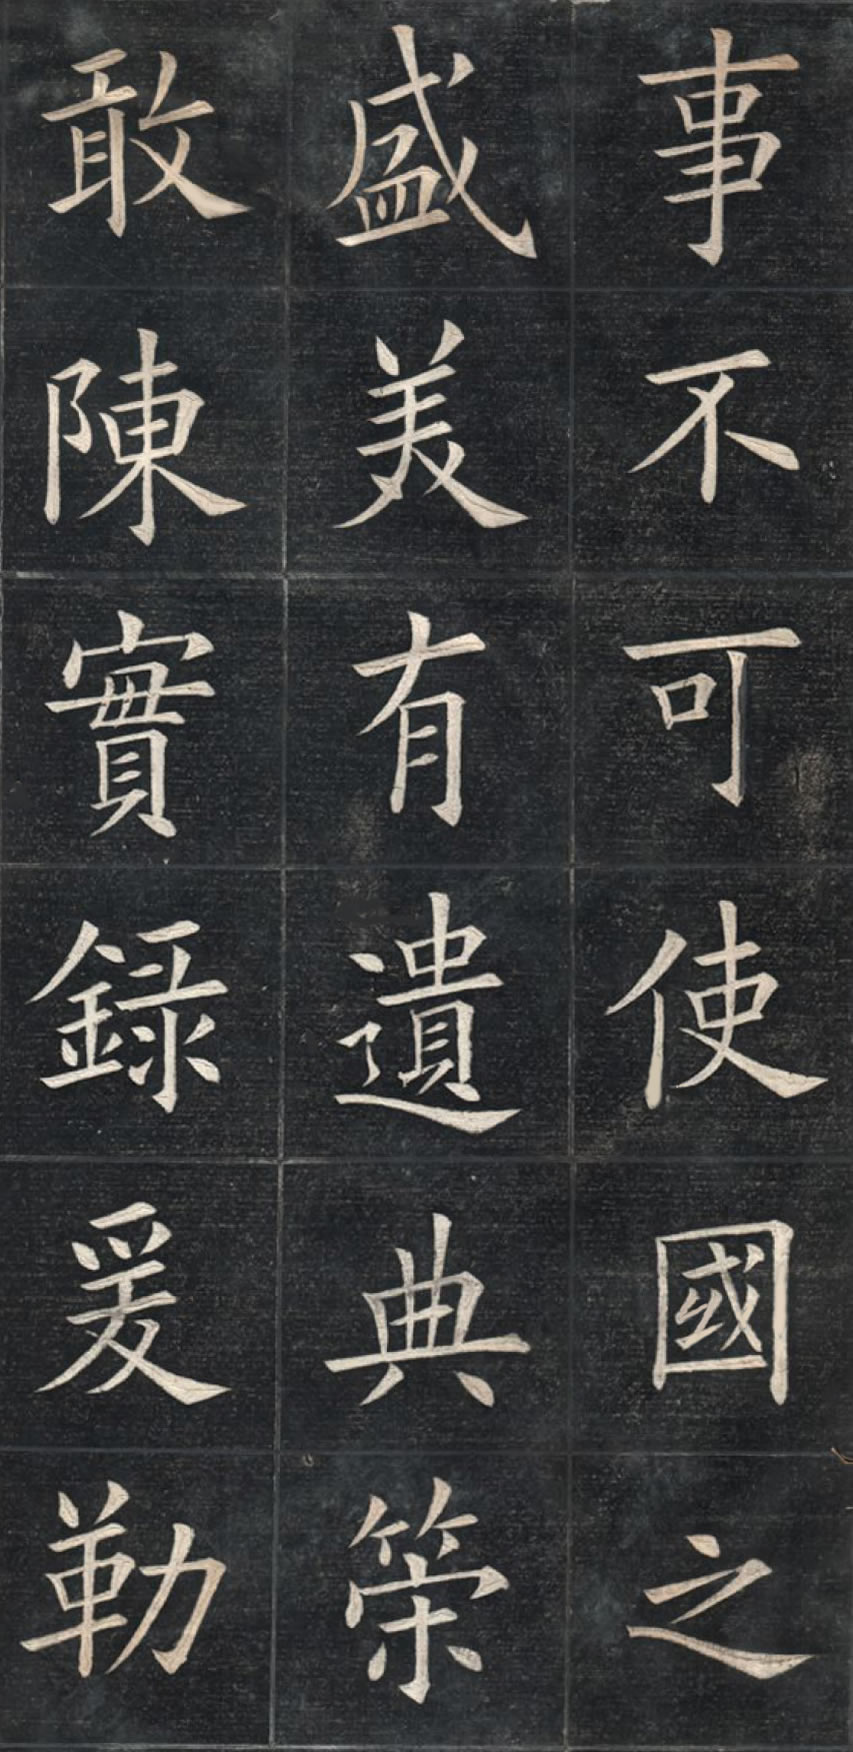 事不可使國之
盛美有遺典策
敢陳實録爰勒